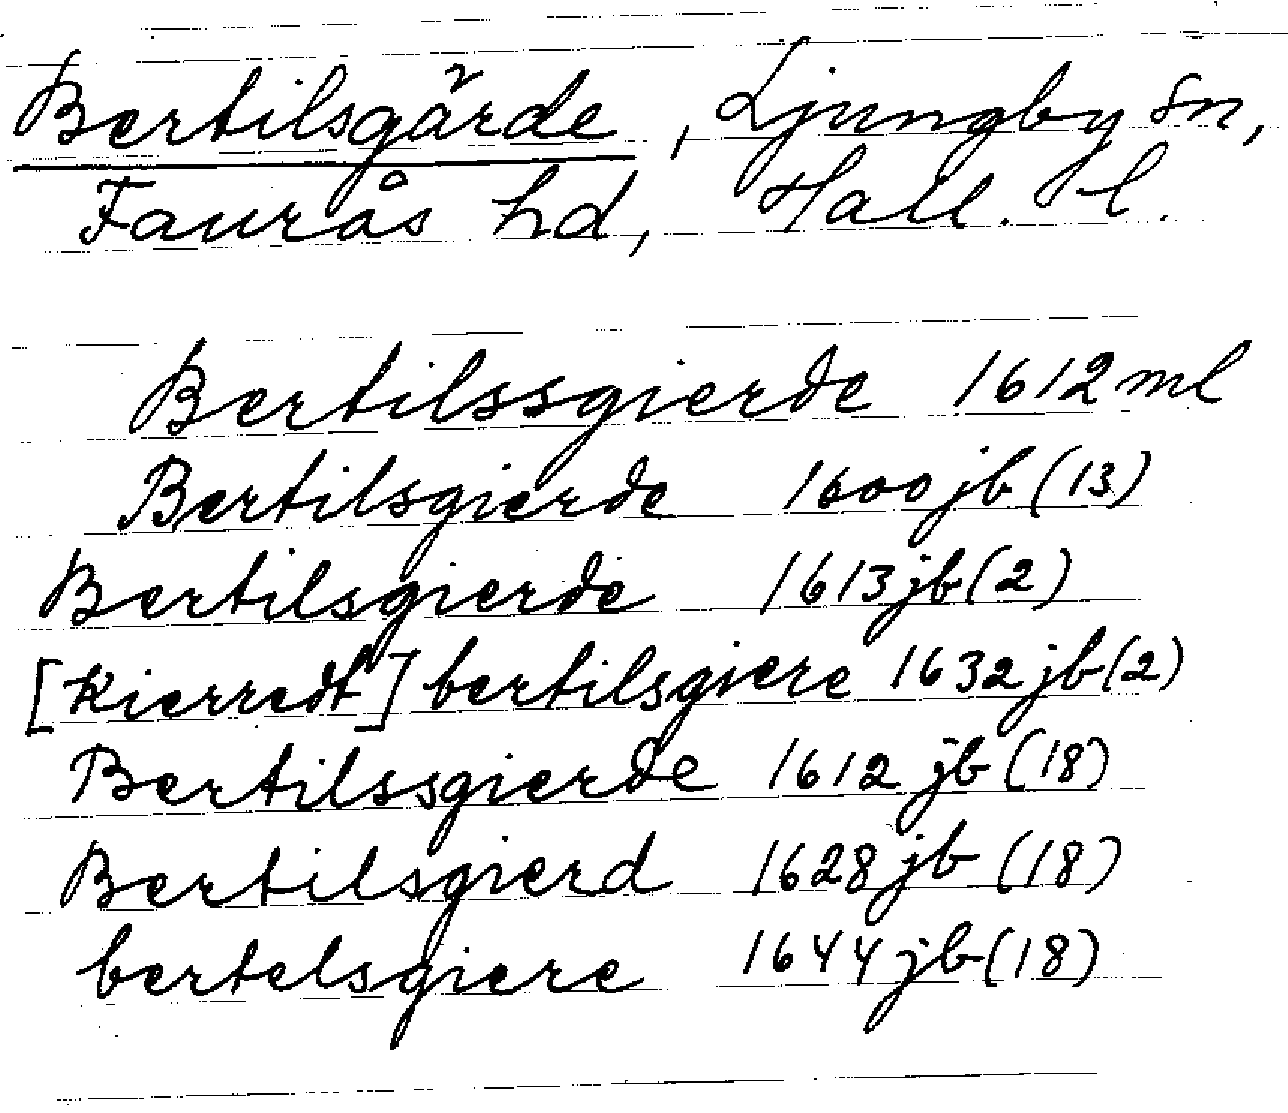 Bertilsgärde, Ljungby sn,
Faurås hd, Hall. l.
Bertilssgierde 1612 ml
Bertilsgierde 1600 jb (13)
Bertilsgierde 1613 jb (2)
[Kierredt] bertilsgiere 1632 jb (2)
Bertilssgierde 1612 jb (18)
Bertilsgierd 1628 jb (18)
bertelsgiere 1644 jb (18)